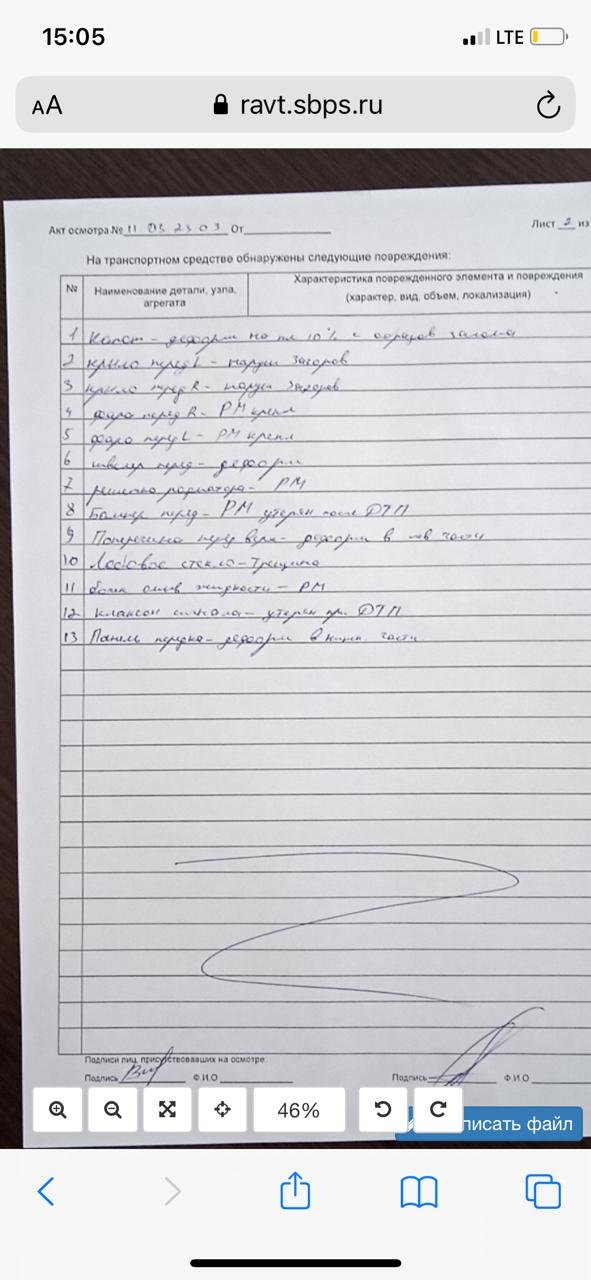 15:05 LTE
AA ravt.sbps.ru
Акт осмотра № 11 05 2303 От
Лист 2 из
На транспортном средстве обнаружены следующие повреждения:
№ Наименование детали, узла, агрегата
Характеристика поврежденного элемента и повреждения
(характер, вид, объем, локализация)
1 Капот - деформ на пл 10% с образов залома
2 крыло перед L - наруш зазоров
3 крыло перед R - наруш зазоров
4 фара перед R - РМ крепл
5 фара перед L - РМ крепл
6 швеллер перед - деформ
7 решетка радиатора - РМ
8 Бампер перед - РМ утерян после ДТП
9 Поперечина перед верх - деформ в части
10 Лобовое стекло - Трещина
11 бачок омыв жидкости - РМ
12 клаксон сигнала - утерян при ДТП
13 Панель передка - деформ в нижн. части
Подписи лиц, присутствовавших на осмотре:
Подпись Ф.И.О Подпись Ф.И.О
46%
писать файл